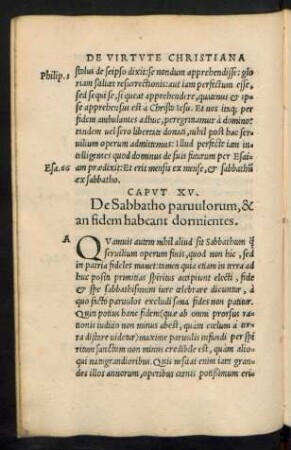 DE VIRTVTE CHRISTIANA
Philip. 1
stolus de seipso dixit: se nondum apprehendisse: glo
riam scilicet resurrectionis: aut iam perfectum esse,
sed sequi se, si queat apprehendere, quatenus & ip
se apprehensus est à Christo Iesu. Et nos itaq; per
fidem ambulantes adhuc, peregrinamur à domino:
tandem uel sero libertati donati, nihil post hac ser
uilium operum admittemus: Illud perfecte iam in
telligentes quod dominus de suis futurum per Esai-
Esa. 66
am prædixit: Et erit mensis ex mense, & sabbathũ
ex sabbatho.
CAPVT XV.
De Sabbatho paruulorum, &
an fidem habeant dormientes.
A
QVamuis autem nihil aliud sit Sabbathum q̃
seruilium operum finis, quod non hic, sed
in patria fideles manet: tamen quia etiam in terra ad
huc positi primitias spiritus accipiunt electi, fide
& spe sabbathismum iure celebrare dicuntur, à
quo facto paruulos excludi sana fides non patitur.
Quin potius hanc fidem (quæ ab omni prorsus ra-
tionis iudicio non minus abest, quàm cœlum à ter
ra distare uidetur) maxime paruulis infundi per spi
ritum sanctum non minus credibile est, quàm alio
qui natu grandioribus. Quis nescit enim iam gran-
des illos annorum, operibus carnis potissimum eri-